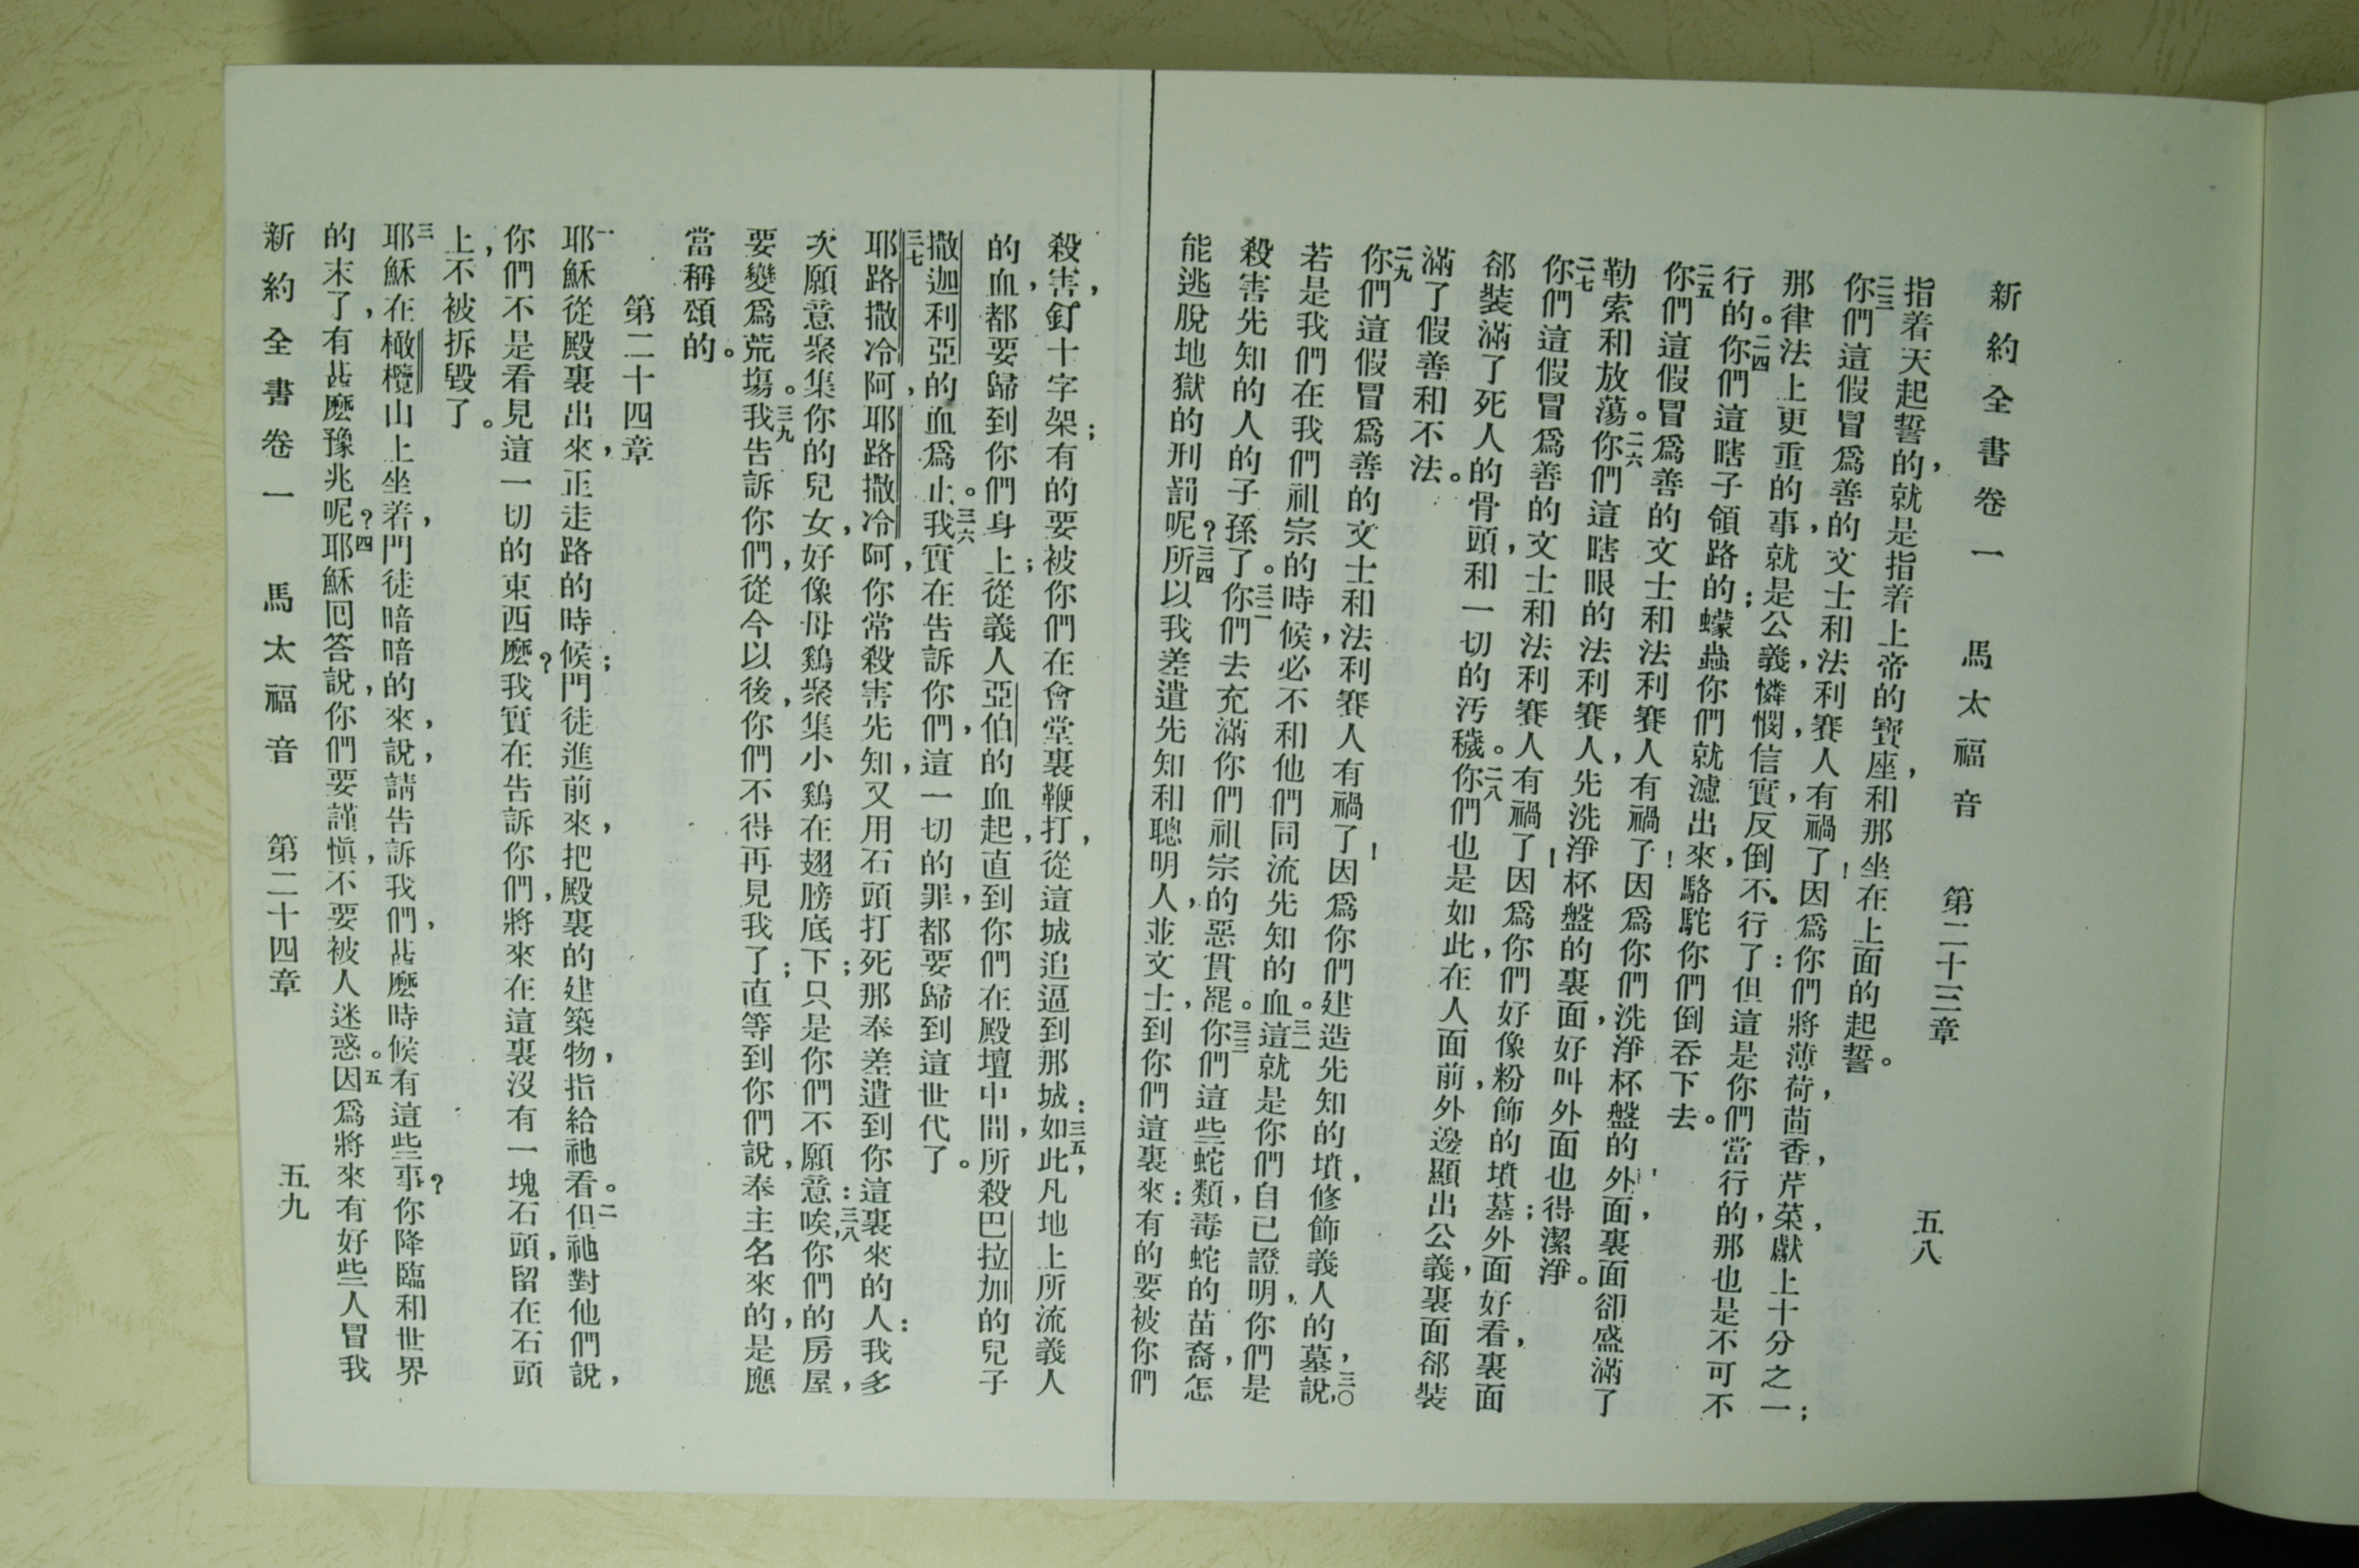 新約全書卷一 馬太福音 第二十三章 五八
指着天起誓的,就是指着上帝的寶座,和那坐在上面的起誓。
二三你們這假冒爲善的文士和法利賽人有禍了!因爲你們將薄荷,茴香,芹菜,獻上十分之一;
那律法上更重的事,就是公義,憐憫,信實,反倒不行了:但這是你們當行的,那也是不可不
行的。二四你們這瞎子領路的;蠓蟲你們就濾出來,駱駝你們倒吞下去。
二五你們這假冒爲善的文士和法利賽人有禍了!因爲你們洗淨杯盤的外面,裏面卻盛滿了
勒索和放蕩。二六你們這瞎眼的法利賽人,先洗淨杯盤的裏面,好叫外面也得潔淨。
二七你們這假冒爲善的文士和法利賽人有禍了!因爲你們好像粉飾的墳墓;外面好看,裏面
郤裝滿了死人的骨頭,和一切的汚穢。二八你們也是如此,在人面前,外邊顯出公義,裏面郤裝
滿了假善和不法。
二九你們這假冒爲善的文士和法利賽人有禍了!因爲你們建造先知的墳,修飾義人的墓,三〇說,
若是我們在我們祖宗的時候,必不和他們同流先知的血。三一這就是你們自已證明,你們是
殺害先知的人的子孫了。三二你們去充滿你們祖宗的惡貫罷。三三你們這些蛇類,毒蛇的苗裔,怎
能逃脫地獄的刑罰呢?三四所以我差遣先知和聰明人,並文士,到你們這裏來:有的要被你們
殺害,釘十字架;有的要被你們在會堂裏鞭打,從這城追逼到那城:三五如此,凡地上所流義人
的血,都要歸到你們身上;從義人亞伯的血起,直到你們在殿壇中間,所殺巴拉加的兒子
撒迦利亞的血爲止。三六我實在告訴你們,這一切的罪,都要歸到這世代了。
三七耶路撒冷阿,耶路撒冷阿,你常殺害先知,又用石頭打死那奉差遣到你這裏來的人:我多
次願意聚集你的兒女,好像母鷄聚集小鷄在翅膀底下;只是你們不願意:三八唉,你們的房屋,
要變爲荒塲。三九我告訴你們,從今以後,你們不得再見我了;直等到你們說,奉主名來的,是應
當稱頌的。
第二十四章
一耶穌從殿裏出來,正走路的時候;門徒進前來,把殿裏的建築物,指給祂看。二但祂對他們說,
你們不是看見這一切的東西麽?我實在告訴你們,將來在這裏沒有一塊石頭,留在石頭
上,不被拆毀了。
三耶穌在橄欖山上坐着,門徒暗暗的來,說,請告訴我們,甚麽時候有這些事?你降臨和世界
的末了,有甚麽豫兆呢?四耶穌囘答說,你們要謹愼,不要被人迷惑。五因爲將來有好些人冒我
新約全書卷一 馬太福音 第二十四章 五九